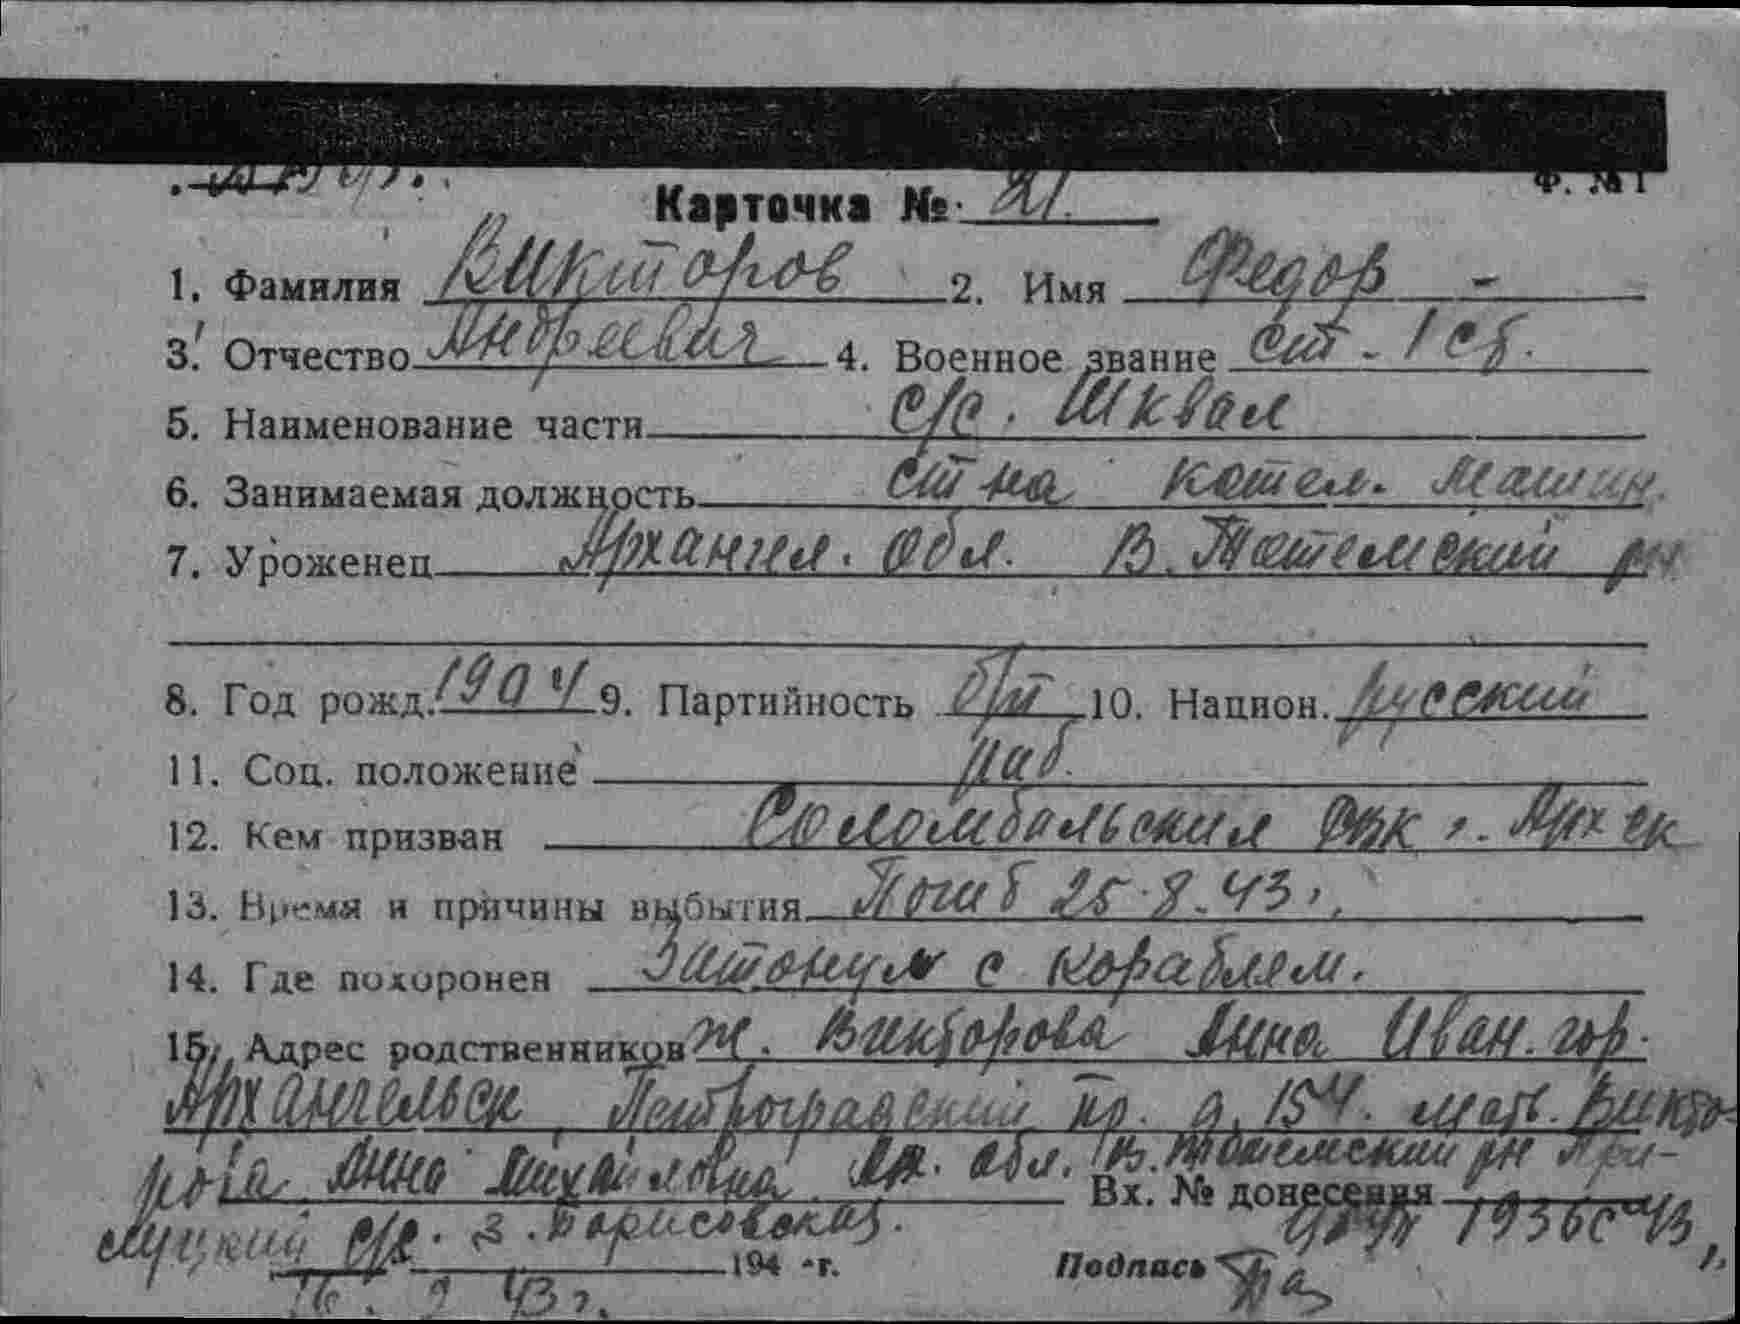 Ф. № 1
Карточка №. 21.
1. Фамилия Викторов 2. Имя Федор -
3. Отчество Андреевич 4. Военное звание ст - 1 ст.
5. Наименование части с/с. Шквал
6. Занимаемая должность ст на котел. машин.
7. Уроженец Архангел. обл. В. Тотемский рн
8. Год рожд. 1904 9. Партийность б/п 10. Национ. русский
11. Соц. положение раб.
12. Кем призван Соломбальским РВК г. Арх ск
13. Время и причины выбытия Погиб 25.8.43 г.
14. Где похоронен Затонул с кораблем.
15. Адрес родственников ж. Викторова Анна Иван. гор.
Архангельск, Петроградский пр. д. 154. мать. Викто-
рова Анна Михайловна. Ар. обл. В. Тотемский рн При-
Вх. № донесения
слуцкий с/с. д. Борисовская.
1936с 43
194 г. Подпись
9 43 г.